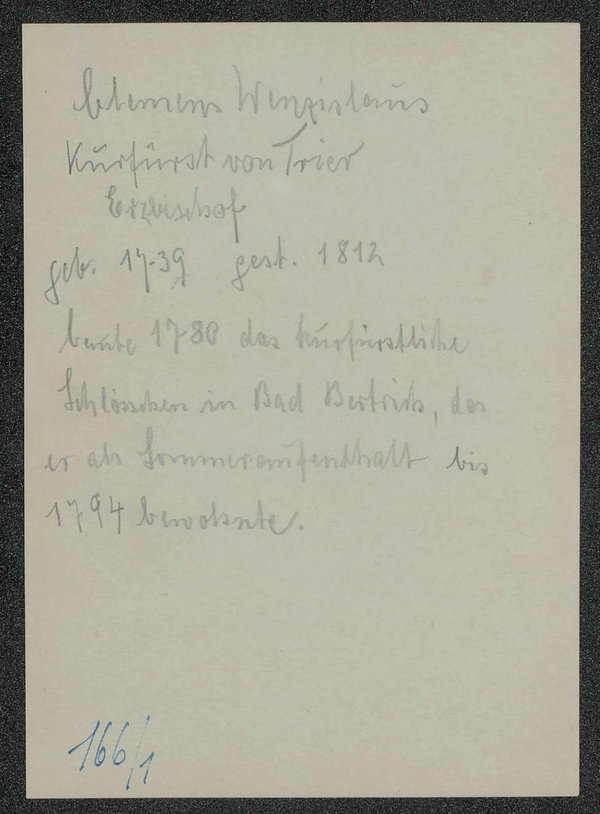 Clemens Wenzislaus
Kurfürst von Trier
Erzbischof
geb. 1739 gest. 1812
baute 1780 das kurfürstliche
Schlösschen in Bad Bertrich, das
er als Sommeraufenthalt bis
1794 bewohnte.
166/1